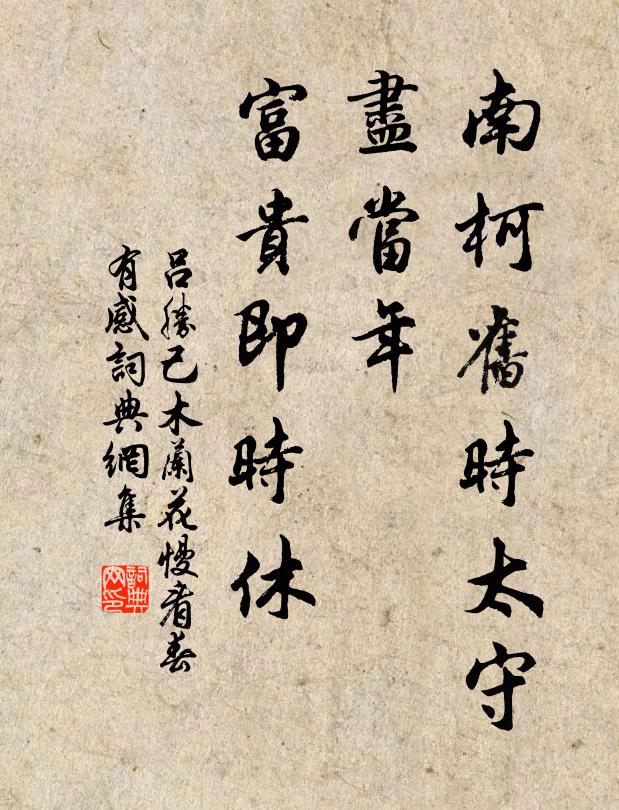 南柯舊時太守
盡當年
富貴即時休
呂勝己木蘭花慢看春
有感詞典網集
詞典
网印